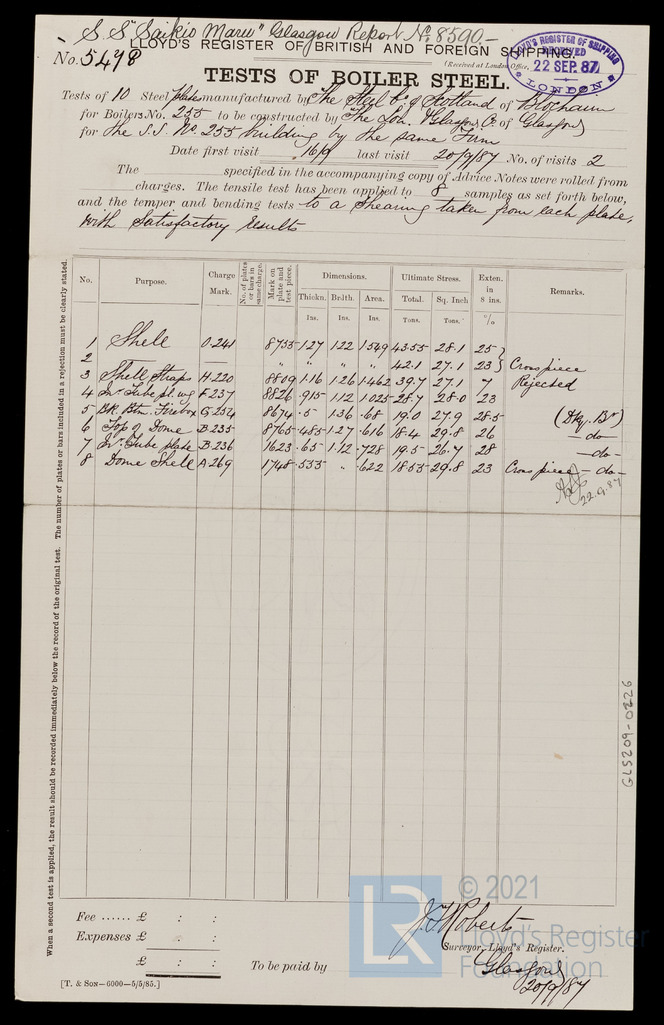 S.S. "Saikio Maru" Glasgow Report No. 8590-
LLOYD'S REGISTER OF BRITISH AND FOREIGN SHIPPING.
No. 5498
(Received at London Office,
LLOYD'S REGISTER OF SHIPPING
RECEIVED
22 SEP. 87
LONDON
TESTS OF BOILER STEEL.
Tests of 10 Steel plates manufactured by The Steel Co. of Scotland of Blochairn
for Boilers No. 255 to be constructed by The Lon. & Glasgow Co. of Glasgow
for the S.S. No. 255 building by the same Firm
Date first visit 16/9 last visit 20/9/87 No. of visits 2
The specified in the accompanying copy of Advice Notes were rolled from
charges. The tensile test has been applied to 8 samples as set forth below,
and the temper and bending tests to a Shearing taken from each plate,
with Satisfactory results
No. Purpose. Charge Mark. No. of plates or bars in same charge. Mark on plate and test piece. Dimensions. Ultimate Stress. Exten. in 8 ins. Remarks.
Thickn. Br'dth. Area. Total. Sq. Inch
Ins. Ins. Ins. Tons. Tons. %
1 Shell O.241 8755 1.27 1.22 1.549 43.55 28.1 25
2 " " " " 42.1 27.1 23 Cross piece
3 Shell Straps H.220 8809 1.16 1.26 1.462 39.7 27.1 7 Rejected
4 F.237 8826 .915 1.12 1.025 28.7 28.0 23
5 Bk. Btm. Firebox G.254 8674 .5 1.36 .68 19.0 27.9 28.5 (Dky. Br.)
6 Top of Dome B.235 8765 .485 1.27 .616 18.4 29.8 26 - do -
7 Tube plate B.236 1623 .65 1.12 .728 19.5 26.7 28 - do -
8 Dome Shell A.269 1748 .555 " .622 18.55 29.8 23 Cross piece - do -
22.9.87
When a second test is applied, the result should be recorded immediately below the record of the original test. The number of plates or bars included in a rejection must be clearly stated.
GLS209-0226
Fee ...... £ : :
Expenses £ : :
£ : :
To be paid by
J. F. Roberts
Surveyor, Lloyd's Register.
Glasgow
20/9/87
[T. & Son—6000—5/5/85.]
LR
© 2021
Lloyd's Register
Foundation